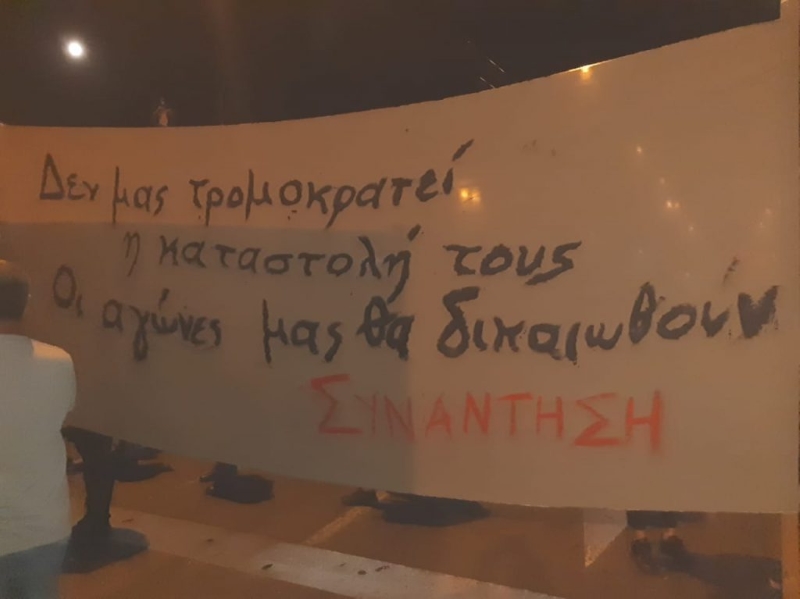 Δεν μας τρομοκρατεί
η καταστολή τους
Οι αγώνες μας θα δικαιωθούν
ΣΥΝΑΝΤΗΣΗ